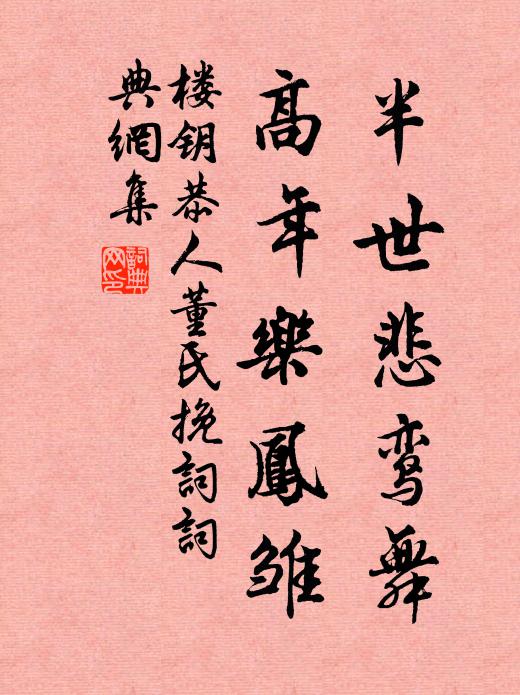 半世悲鸾舞
高年樂鳳雏
楼钥恭人董氏挽詞詞
典網集
詞典网印